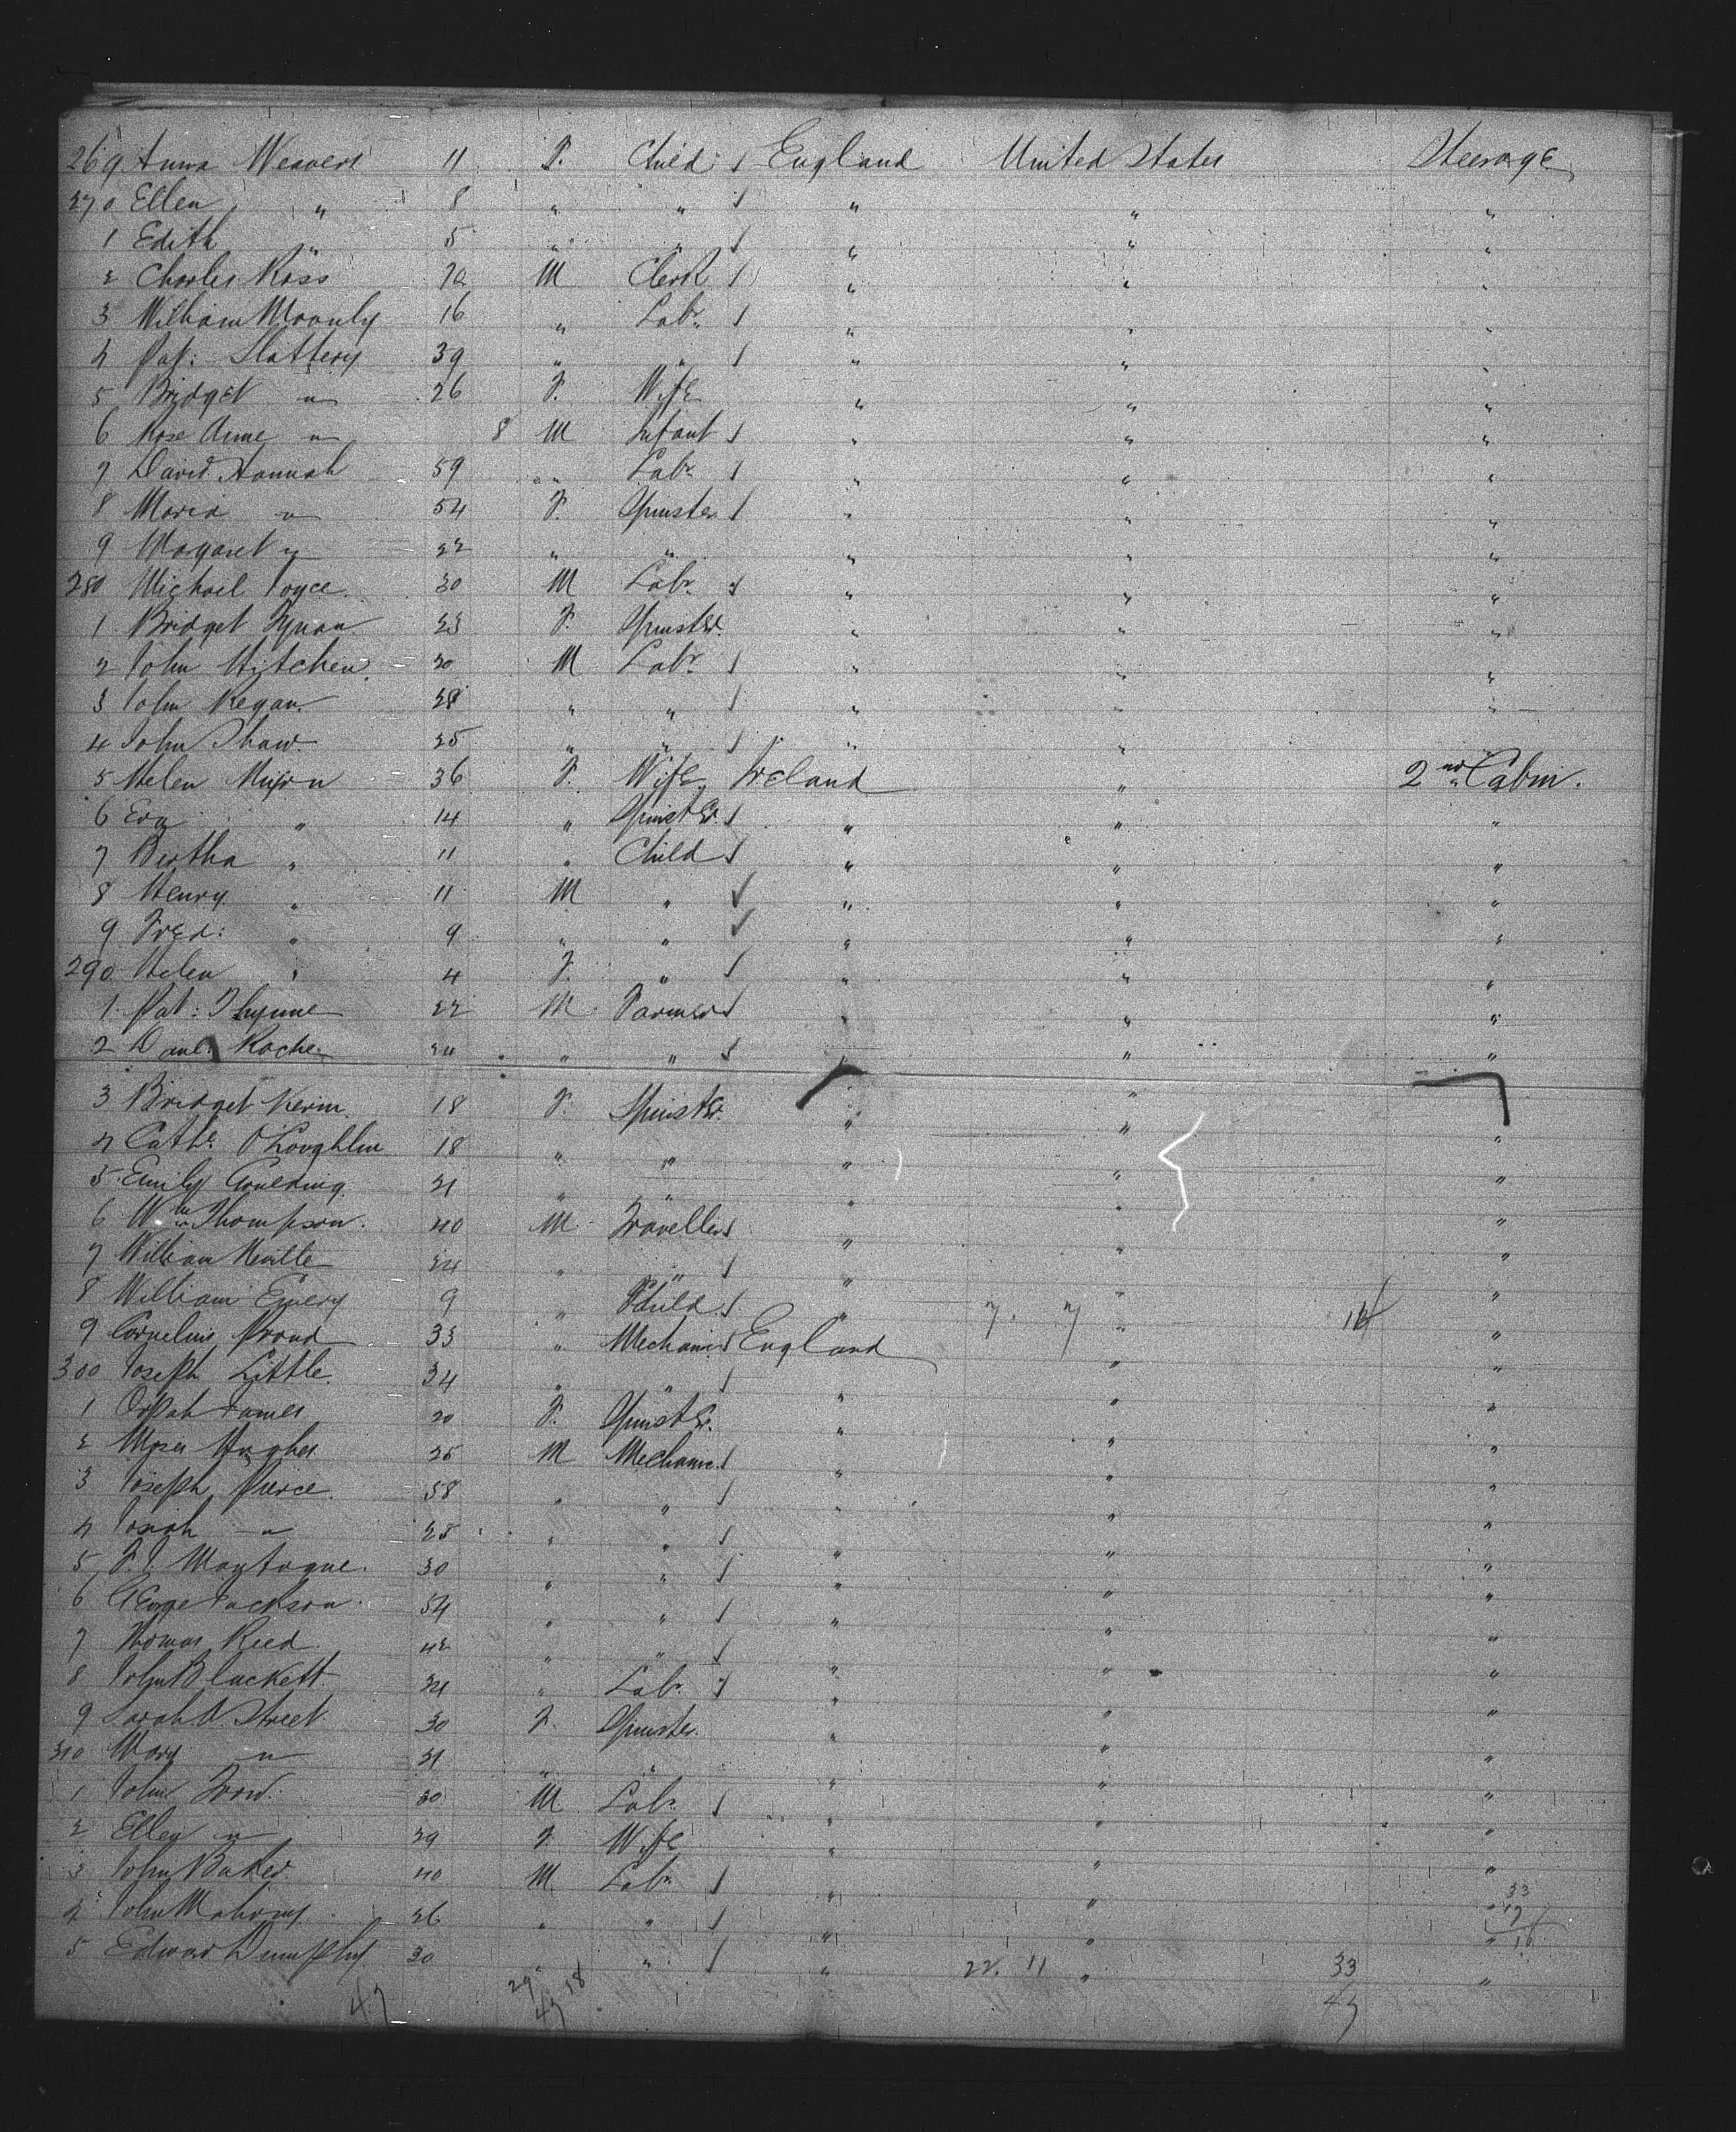 269 Anna Weavers 11 F. Child England United States Steerage
270 Ellen " 8 " " " " "
1 Edith " 5 " " " " "
2 Charles Ross M Clerk " " "
3 William 16 " Labr. " " "
4 Pat: Slattery 39 " " " " "
5 Bridget " 26 F. Wife " " "
6 Rose Anne " 8 M Infant " " "
7 David Hannah 59 " Labr " " "
8 Maria " 54 F. Spinster " " "
9 Margaret " 22 " " " " "
280 Michael Joyce 30 M Labr " " "
1 Bridget Tynan 23 F. Spinstr. " " "
2 John Hitchen 20 M Labr " " "
3 John Regan 28 " " " " "
4 John Shaw 25 " " " " "
5 Helen 36 F. Wife Ireland " 2nd Cabin.
6 Eva " 14 " Spinstr. " " "
7 Bertha " 11 " Child " " "
8 Henry " 11 M " " " "
9 Fred: " 9 " " " " "
290 Helen " 4 F. " " " "
1 Pat: 22 M Farmer " " "
2 Danl. Roche 24 " " " " "
3 Bridget Kerin 18 F. Spinstr. " " "
4 Cathe. O'Loughlin 18 " " " " "
5 Emily Goulding 21 " " " " "
6 Wm Thompson. 40 M Traveller " " "
7 William Neville 24 " " " " "
8 William Emery 9 " Child " " "
9 Cornelius Proud 33 " Mechanic England 7. 7 " 14 "
300 Joseph Little 34 " " " " "
1 Orpah James 20 F. Spinstr. " " "
2 Moses Hughes 25 M Mechanic " " "
3 Joseph Pierce 58 " " " " "
4 Josiah " 25 " " " " "
5 F. J. Montague. 30 " " " " "
6 George Jackson 54 " " " " "
7 Thomas Reed 42 " " " " "
8 John Blackett 24 " Labr " " "
9 Sarah A. Street 30 F. Spinster " " "
310 Mary " 21 " " " " "
1 John Trow. 30 M Labr " " "
2 Ellen " 29 F. Wife " " "
3 John Baker 40 M Labr " " "
4 John Mahony 26 " " " " "
5 Edward Dumphy 30 " " " 22. 11 " 33 "
47 29 18 47 47